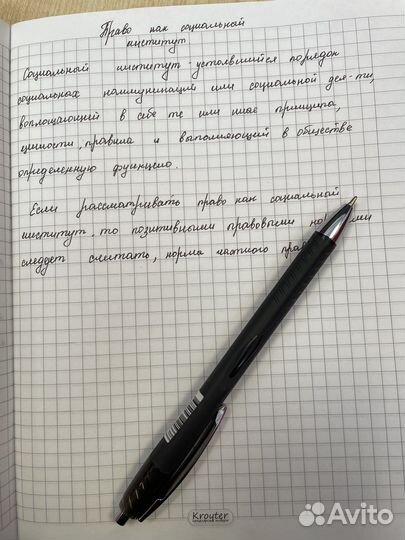 Право как социальный
институт
Социальный институт - устоявшийся порядок
социальных коммуникаций или социальной деят-ти,
воплощающий в себе те или иные принципы,
ценности, правила и выполняющий в обществе
определенную функцию.
Если рассматривать право как социальный
институт, то позитивными правовыми
следует считать, норма частного
Kroyter
Avito